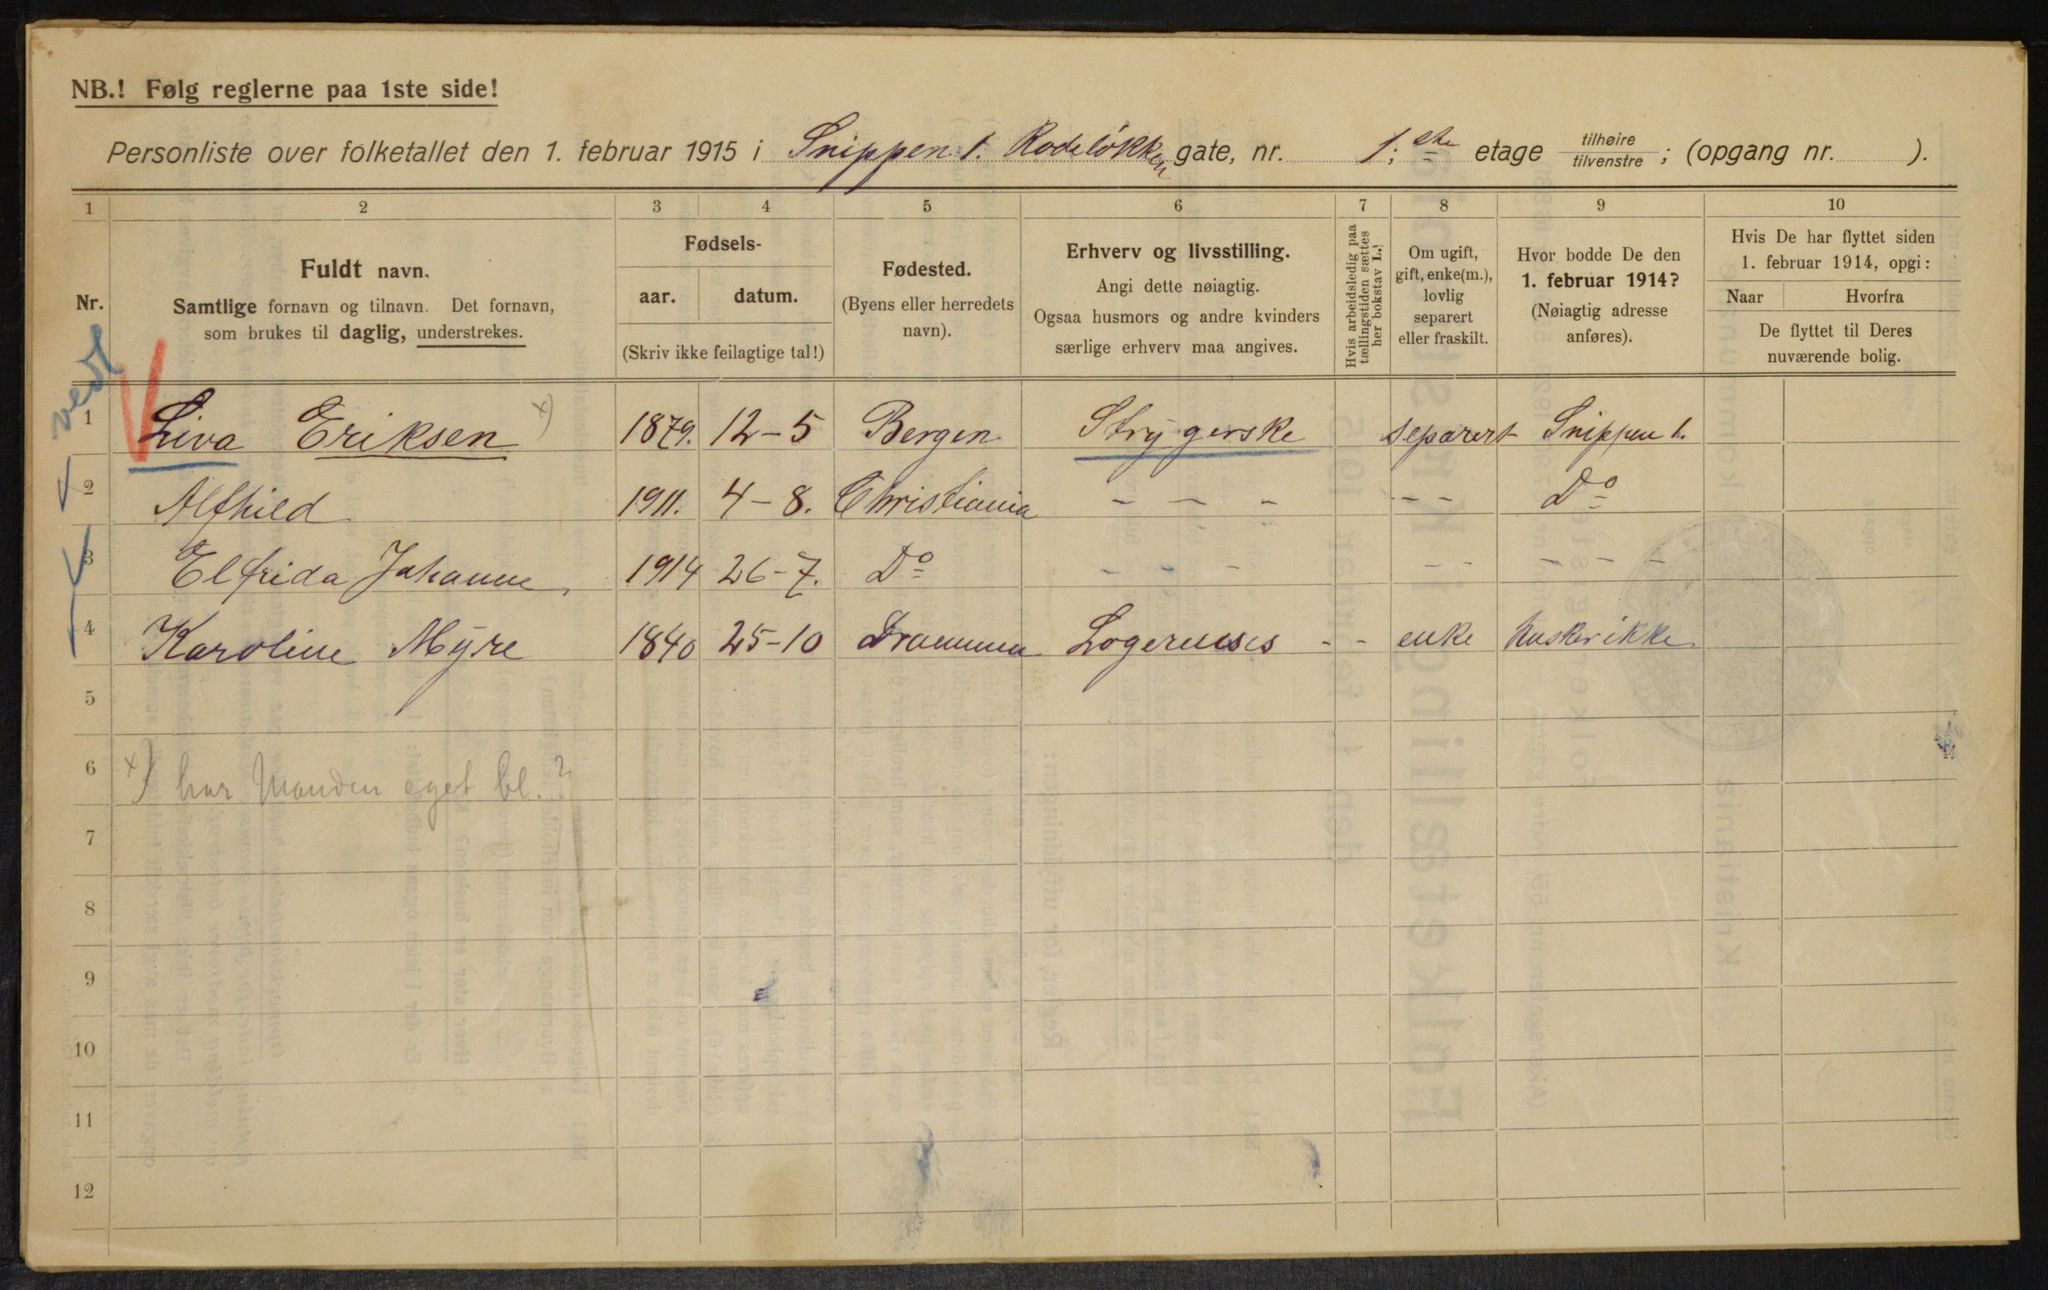 NB.! Følg reglerne paa 1ste side!
Personliste over folketallet den 1. februar 1915 i Snippen 1. Rodeløkken gate, nr. 1; ste etage tilhøire tilvenstre; (opgang nr. ).
1 2 3 4 5 6 7 8 9 10
Nr.
Fuldt navn.
Samtlige fornavn og tilnavn. Det fornavn,
som brukes til daglig, understrekes.
Fødsels-
aar. datum.
(Skriv ikke feilagtige tal!)
Fødested.
(Byens eller herredets
navn).
Erhverv og livsstilling.
Angi dette nøiagtig.
Ogsaa husmors og andre kvinders
særlige erhverv maa angives.
Hvis arbeidsledig paa
tællingstiden sættes
her bokstav L.!
Om ugift,
gift, enke(m.),
lovlig
separert
eller fraskilt.
Hvor bodde De den
1. februar 1914?
(Nøiagtig adresse
anføres).
Hvis De har flyttet siden
1. februar 1914, opgi:
Naar Hvorfra
De flyttet til Deres
nuværende bolig.
1 Liva Eriksen x) 1879. 12-5 Bergen Strygerske separert Snippen 1.
2 Alfhild 1911. 4-8. Christiania - - - - - Do
3 Elfrida Johanne, 1914 26-7. Do - - - - - - - -
4 Karoline Myre 1840 25-10 Drammen Logerendes - - enke husker ikke
5
6 x) har Manden eget bl.?
7
8
9
10
11
12